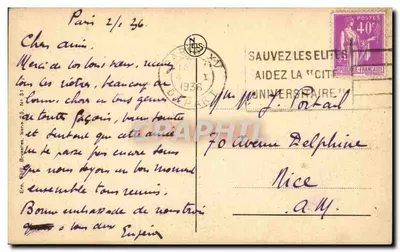 Paris 2/1 36
Chers amis.
Merci de vos bons vœux, meilleurs
tous les nôtres, beaucoup de
bonnes choses en tous genres
de toute façon, bonne santé
et surtout que cette année
ne se passe pas encore sans
que nous soyons un bon moment
ensemble tous réunis.
Bonne embrassade de nous trois
à tous deux Eugénie
PARIS XV
1936
DÉPART
SAUVEZ LES ELITES
AIDEZ LA "CITÉ
UNIVERSITAIRE"
POSTES
40c
Mme M. J.
70 Avenue Delphine
Nice
A.M.